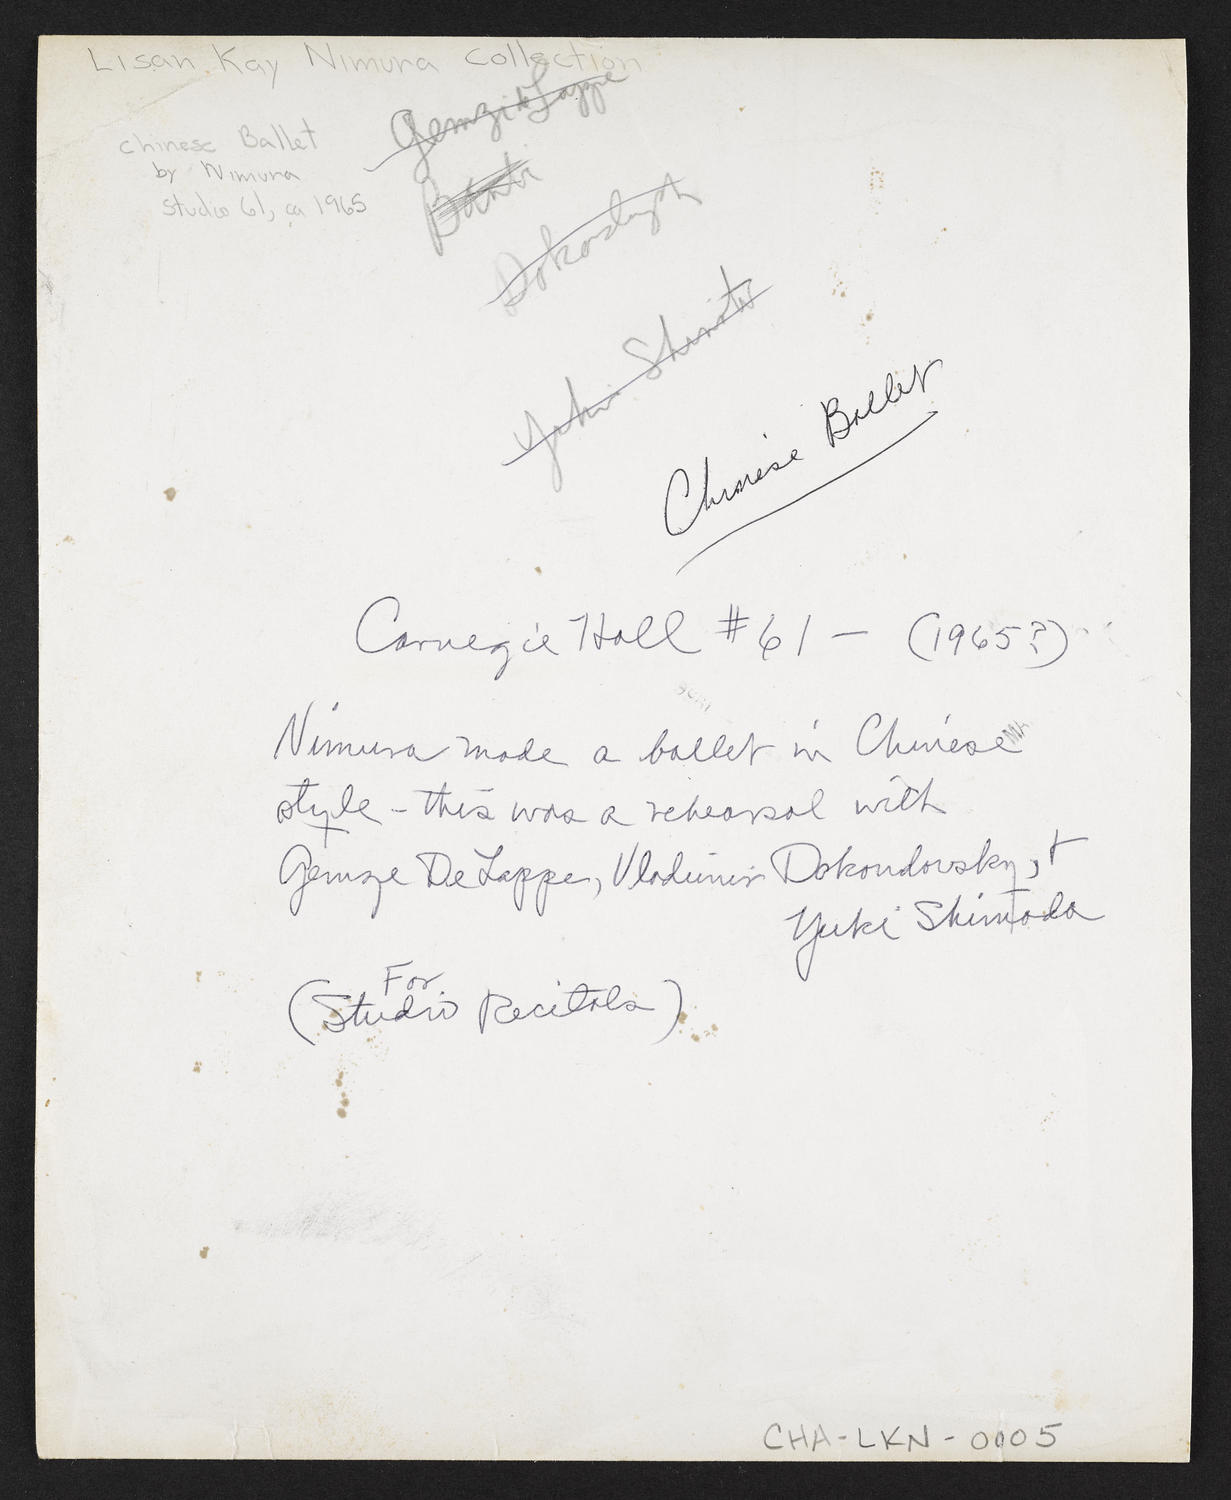 Lisan Kay Nimura Collection
Gemze de Lappe
Chinese Ballet
by Nimura
Studio 61, ca 1965
Chinese Ballet
Carnegie Hall #61 - (1965?)
Nimura made a ballet in Chinese
style - this was a rehearsal with
Gemze De Lappe, Vladimir Dokoudovsky, +
Yuki Shimoda
For
(Studio Recitals)
CHA-LKN-0005